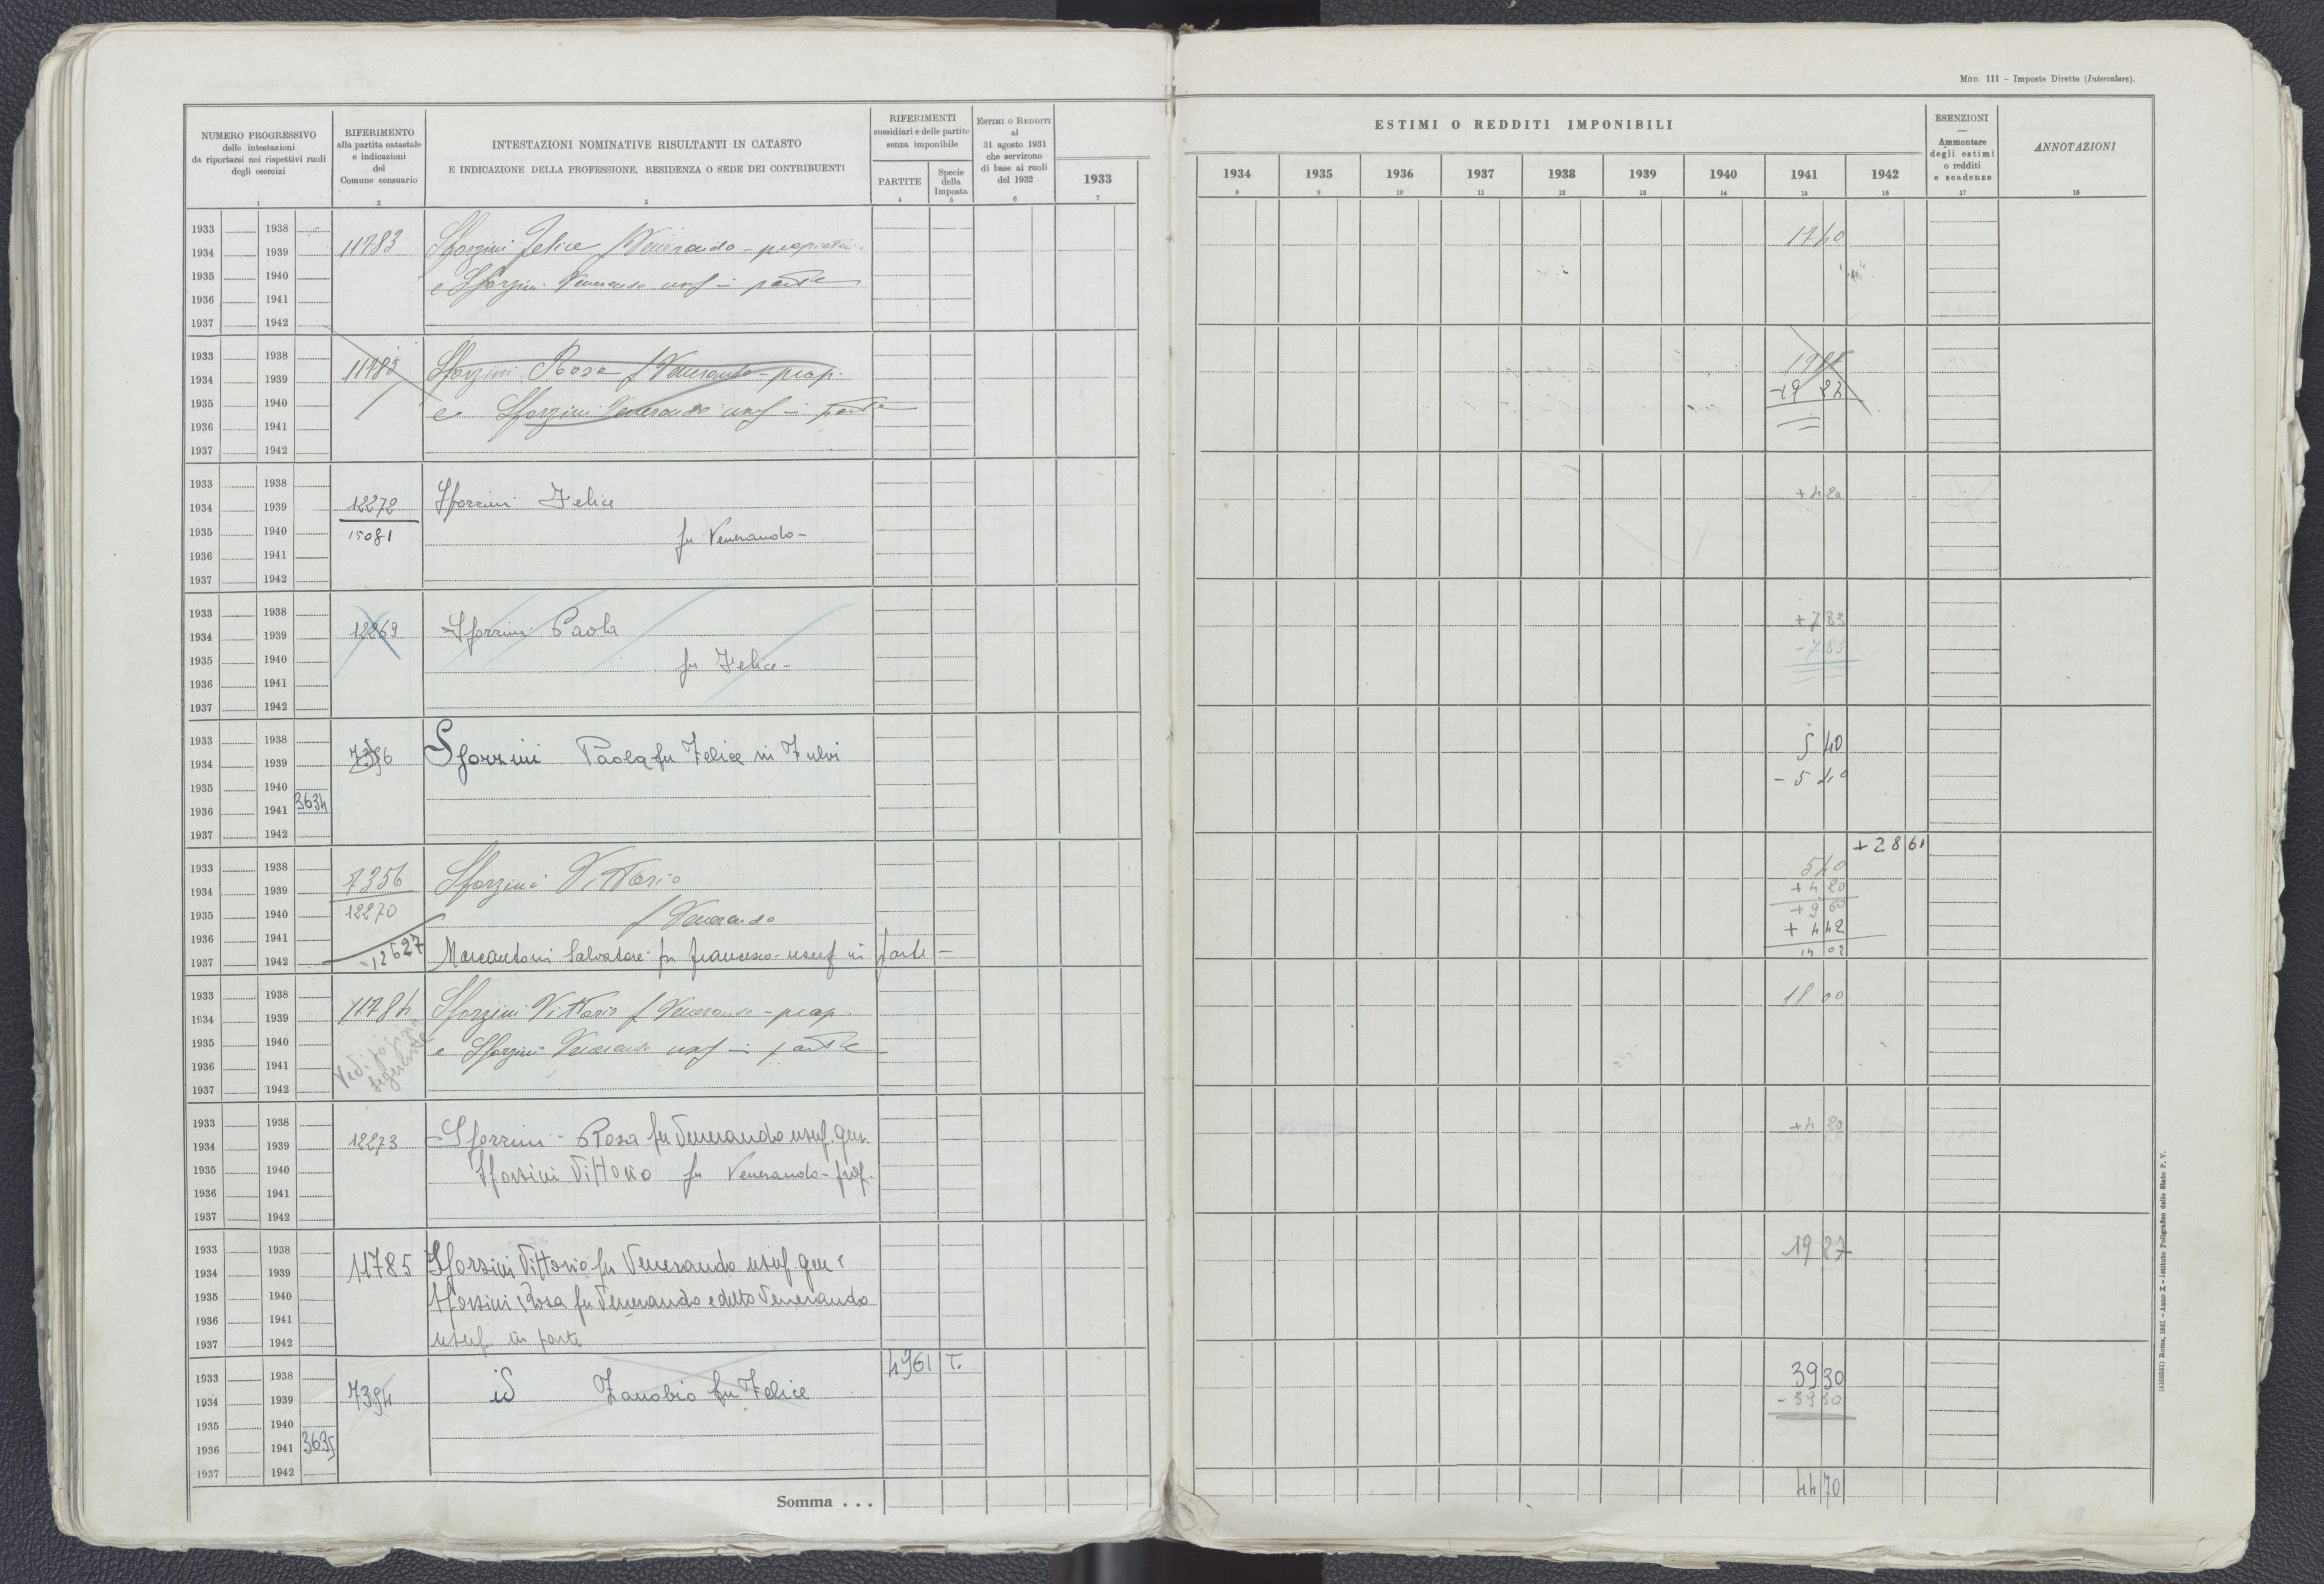 MOD. 111 - Imposte Dirette (Intercalare).
NUMERO PROGRESSIVO
delle intestazioni
da riportarsi nei rispettivi ruoli
degli esercizi
1
RIFERIMENTO
alla partita catastale
e indicazioni
del
Comune censuario
2
INTESTAZIONI NOMINATIVE RISULTANTI IN CATASTO
E INDICAZIONE DELLA PROFESSIONE, RESIDENZA O SEDE DEI CONTRIBUENTI
3
RIFERIMENTI
sussidiari e delle partite
senza imponibile
PARTITE
4
Specie
della
Imposta
5
ESTIMI O REDDITI
al
31 agosto 1931
che servirono
di base ai ruoli
del 1932
6
1933
7
ESTIMI O REDDITI IMPONIBILI
1934 1935 1936 1937 1938 1939 1940 1941 1942
8 9 10 11 12 13 14 15 16
ESENZIONI
—
Ammontare
degli estimi
o redditi
e scadenze
17
ANNOTAZIONI
18
1933 1938
1934 1939 11783 Sforzini Felice f Venerando - propriet. 1740
1935 1940 e Sforzini Venerando usuf in parte
1936 1941
1937 1942
1933 1938
1934 1939 11785 Sforzini Rosa f Venerando - prop.
1935 1940 e Sforzini Venerando usuf in parte
1936 1941
1937 1942
1933 1938
1934 1939 12272 Sforzini Felice +420
1935 1940 15081 fu Venerando -
1936 1941
1937 1942
1933 1938
1934 1939 12269 Sforzini Paola +783
1935 1940 fu Felice - -783
1936 1941
1937 1942
1933 1938
1934 1939 Sforzini Paola fu Felice in Fulvi 540
1935 1940 -540
1936 1941 3634
1937 1942
+2861
1933 1938 540
1934 1939 7356 Sforzini Vittorio +420
1935 1940 12270 f Venerando +960
1936 1941 +442
1937 1942 12627 Marcantoni Salvatore fu Francesco - usuf in parte - 1402
1933 1938
1934 1939 11784 Sforzini Vittorio f Venerando - prop. 1800
1935 1940 e Sforzini Venerando usuf in parte
1936 1941 Vedi pagina
1937 1942 seguente
1933 1938
1934 1939 12273 Sforzini - Rosa fu Venerando usuf. gen. +420
1935 1940 Sforzini Vittorio fu Venerando - prop.
1936 1941
1937 1942
1933 1938
1934 1939 11785 Sforzini Vittorio fu Venerando usuf. gen e 1987
1935 1940 Sforzini Rosa fu Venerando e detto Venerando
1936 1941
1937 1942 usuf in parte
1933 1938 4961 T.
1934 1939 7394 id Zanobio fu Felice 3930
1935 1940 -3930
1936 1941 3635
1937 1942
Somma . . . 4470
(4100331) Roma, 1931 - Anno X - Istituto Poligrafico dello Stato P. V.